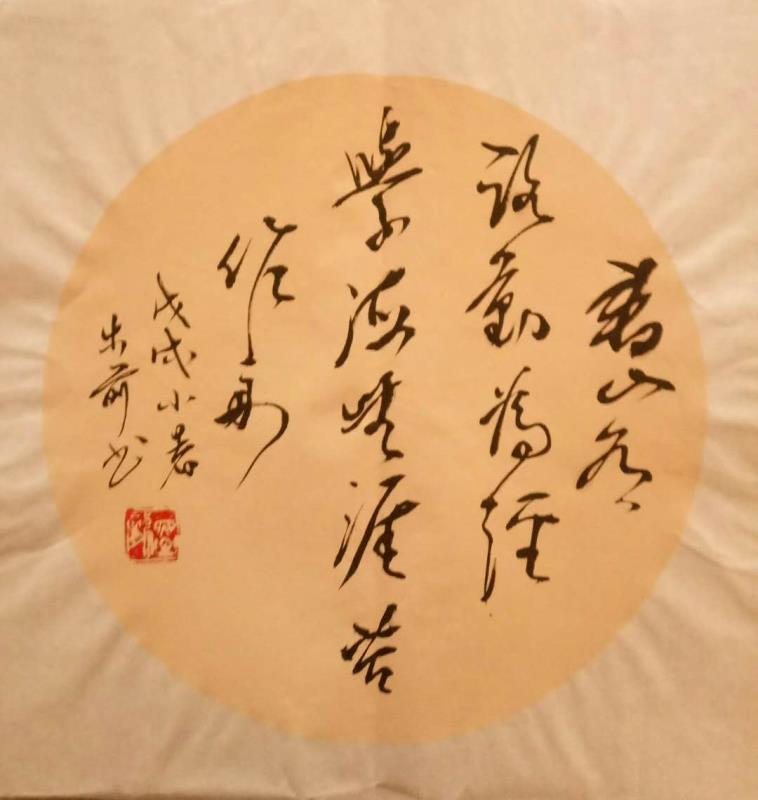 書山有
路勤為徑
學海無涯苦
作舟
戊戌小暑
书